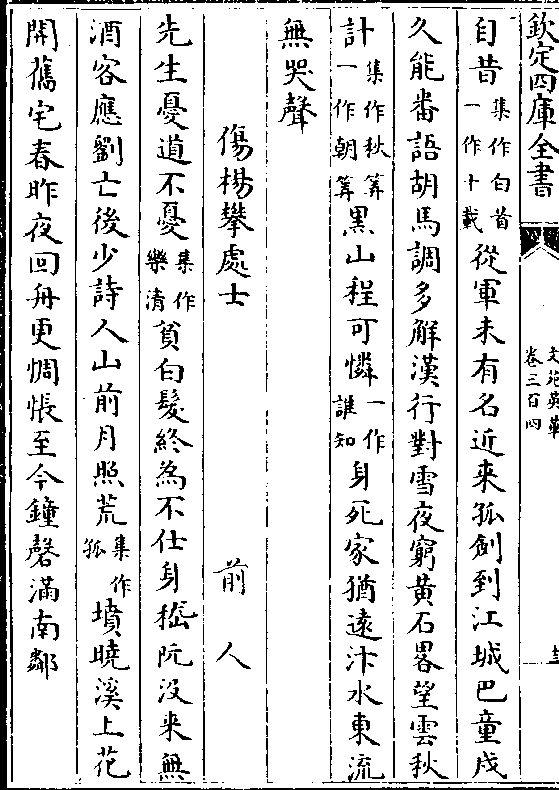 欽定四庫全書
文苑英華
卷三百四
自昔集作白首一作十載從軍未有名近来孤劍到江城巴童戍
久能番語胡馬調多解漢行對雪夜窮黄石畧望雲秋
計集作秋筭一作朝筭黒山程可憐一作誰知身死家猶遠汴水東流
無哭聲
傷楊攀處士
前人
先生憂道不憂集作樂清貧白髪終為不仕身嵇阮没来無
酒客應劉亡後少詩人山前月照荒集作孤墳曉溪上花
開舊宅春昨夜回舟更惆悵至今鐘磬滿南鄰